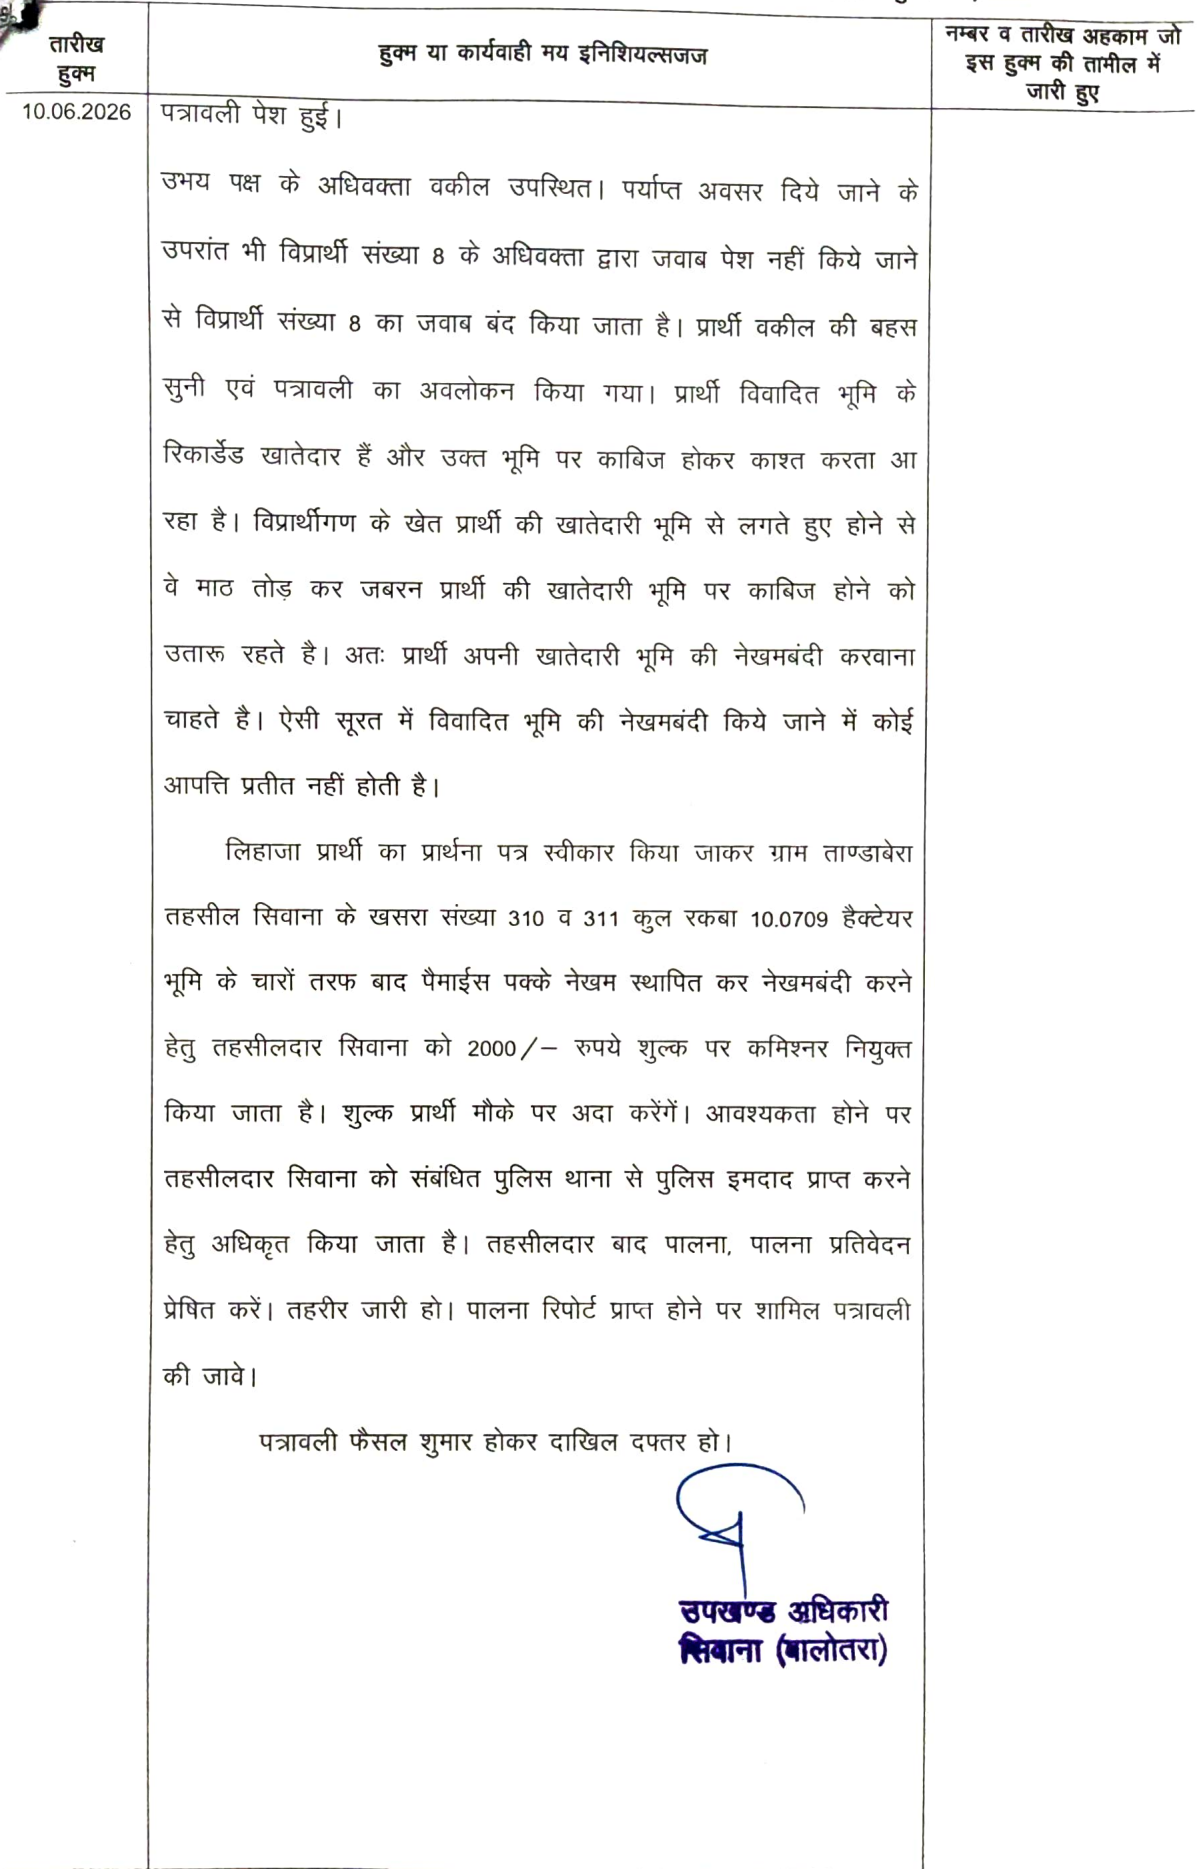 तारीख
हुक्म
हुक्म या कार्यवाही मय इनिशियल्सजज
नम्बर व तारीख अहकाम जो
इस हुक्म की तामील में
जारी हुए
10.06.2026
पत्रावली पेश हुई।
उभय पक्ष के अधिवक्ता वकील उपस्थित। पर्याप्त अवसर दिये जाने के
उपरांत भी विप्रार्थी संख्या 8 के अधिवक्ता द्वारा जवाब पेश नहीं किये जाने
से विप्रार्थी संख्या 8 का जवाब बंद किया जाता है। प्रार्थी वकील की बहस
सुनी एवं पत्रावली का अवलोकन किया गया। प्रार्थी विवादित भूमि के
रिकार्डेड खातेदार हैं और उक्त भूमि पर काबिज होकर काश्त करता आ
रहा है। विप्रार्थीगण के खेत प्रार्थी की खातेदारी भूमि से लगते हुए होने से
वे माठ तोड़ कर जबरन प्रार्थी की खातेदारी भूमि पर काबिज होने को
उतारू रहते है। अतः प्रार्थी अपनी खातेदारी भूमि की नेखमबंदी करवाना
चाहते है। ऐसी सूरत में विवादित भूमि की नेखमबंदी किये जाने में कोई
आपत्ति प्रतीत नहीं होती है।
लिहाजा प्रार्थी का प्रार्थना पत्र स्वीकार किया जाकर ग्राम ताण्डाबेरा
तहसील सिवाना के खसरा संख्या 310 व 311 कुल रकबा 10.0709 हैक्टेयर
भूमि के चारों तरफ बाद पैमाईस पक्के नेखम स्थापित कर नेखमबंदी करने
हेतु तहसीलदार सिवाना को 2000/– रुपये शुल्क पर कमिश्नर नियुक्त
किया जाता है। शुल्क प्रार्थी मौके पर अदा करेंगें। आवश्यकता होने पर
तहसीलदार सिवाना को संबंधित पुलिस थाना से पुलिस इमदाद प्राप्त करने
हेतु अधिकृत किया जाता है। तहसीलदार बाद पालना, पालना प्रतिवेदन
प्रेषित करें। तहरीर जारी हो। पालना रिपोर्ट प्राप्त होने पर शामिल पत्रावली
की जावे।
पत्रावली फैसल शुमार होकर दाखिल दफ्तर हो।
उपखण्ड अधिकारी
सिवाना (बालोतरा)